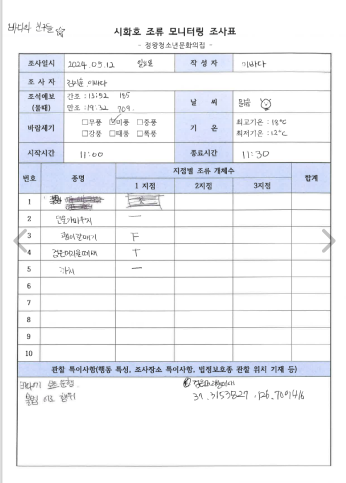 시화호 조류 모니터링 조사표
- 정왕청소년문화의집 -
조사일시 2024. 05. 12 일요일 작성자 이바다
조사자 이바다
조석예보 (물때) 간조 : 13:52 185
만조 : 19:32 709.
날씨 맑음
바람세기 □무풍 ☑미풍 □중풍
□강풍 □태풍 □폭풍
기온 최고기온 : 18℃
최저기온 : 12℃
시작시간 11:00 종료시간 11:30
번호 종명 지점별 조류 개체수 합계
1 지점 2지점 3지점
1
2 민물가마우지 一
3 괭이갈매기 F
4 검은머리물떼새 T
5 까치 一
6
7
8
9
10
관찰 특이사항(행동 특성, 조사장소 특이사항, 법정보호종 관찰 위치 기재 등)
37.3153827, 126.7001416